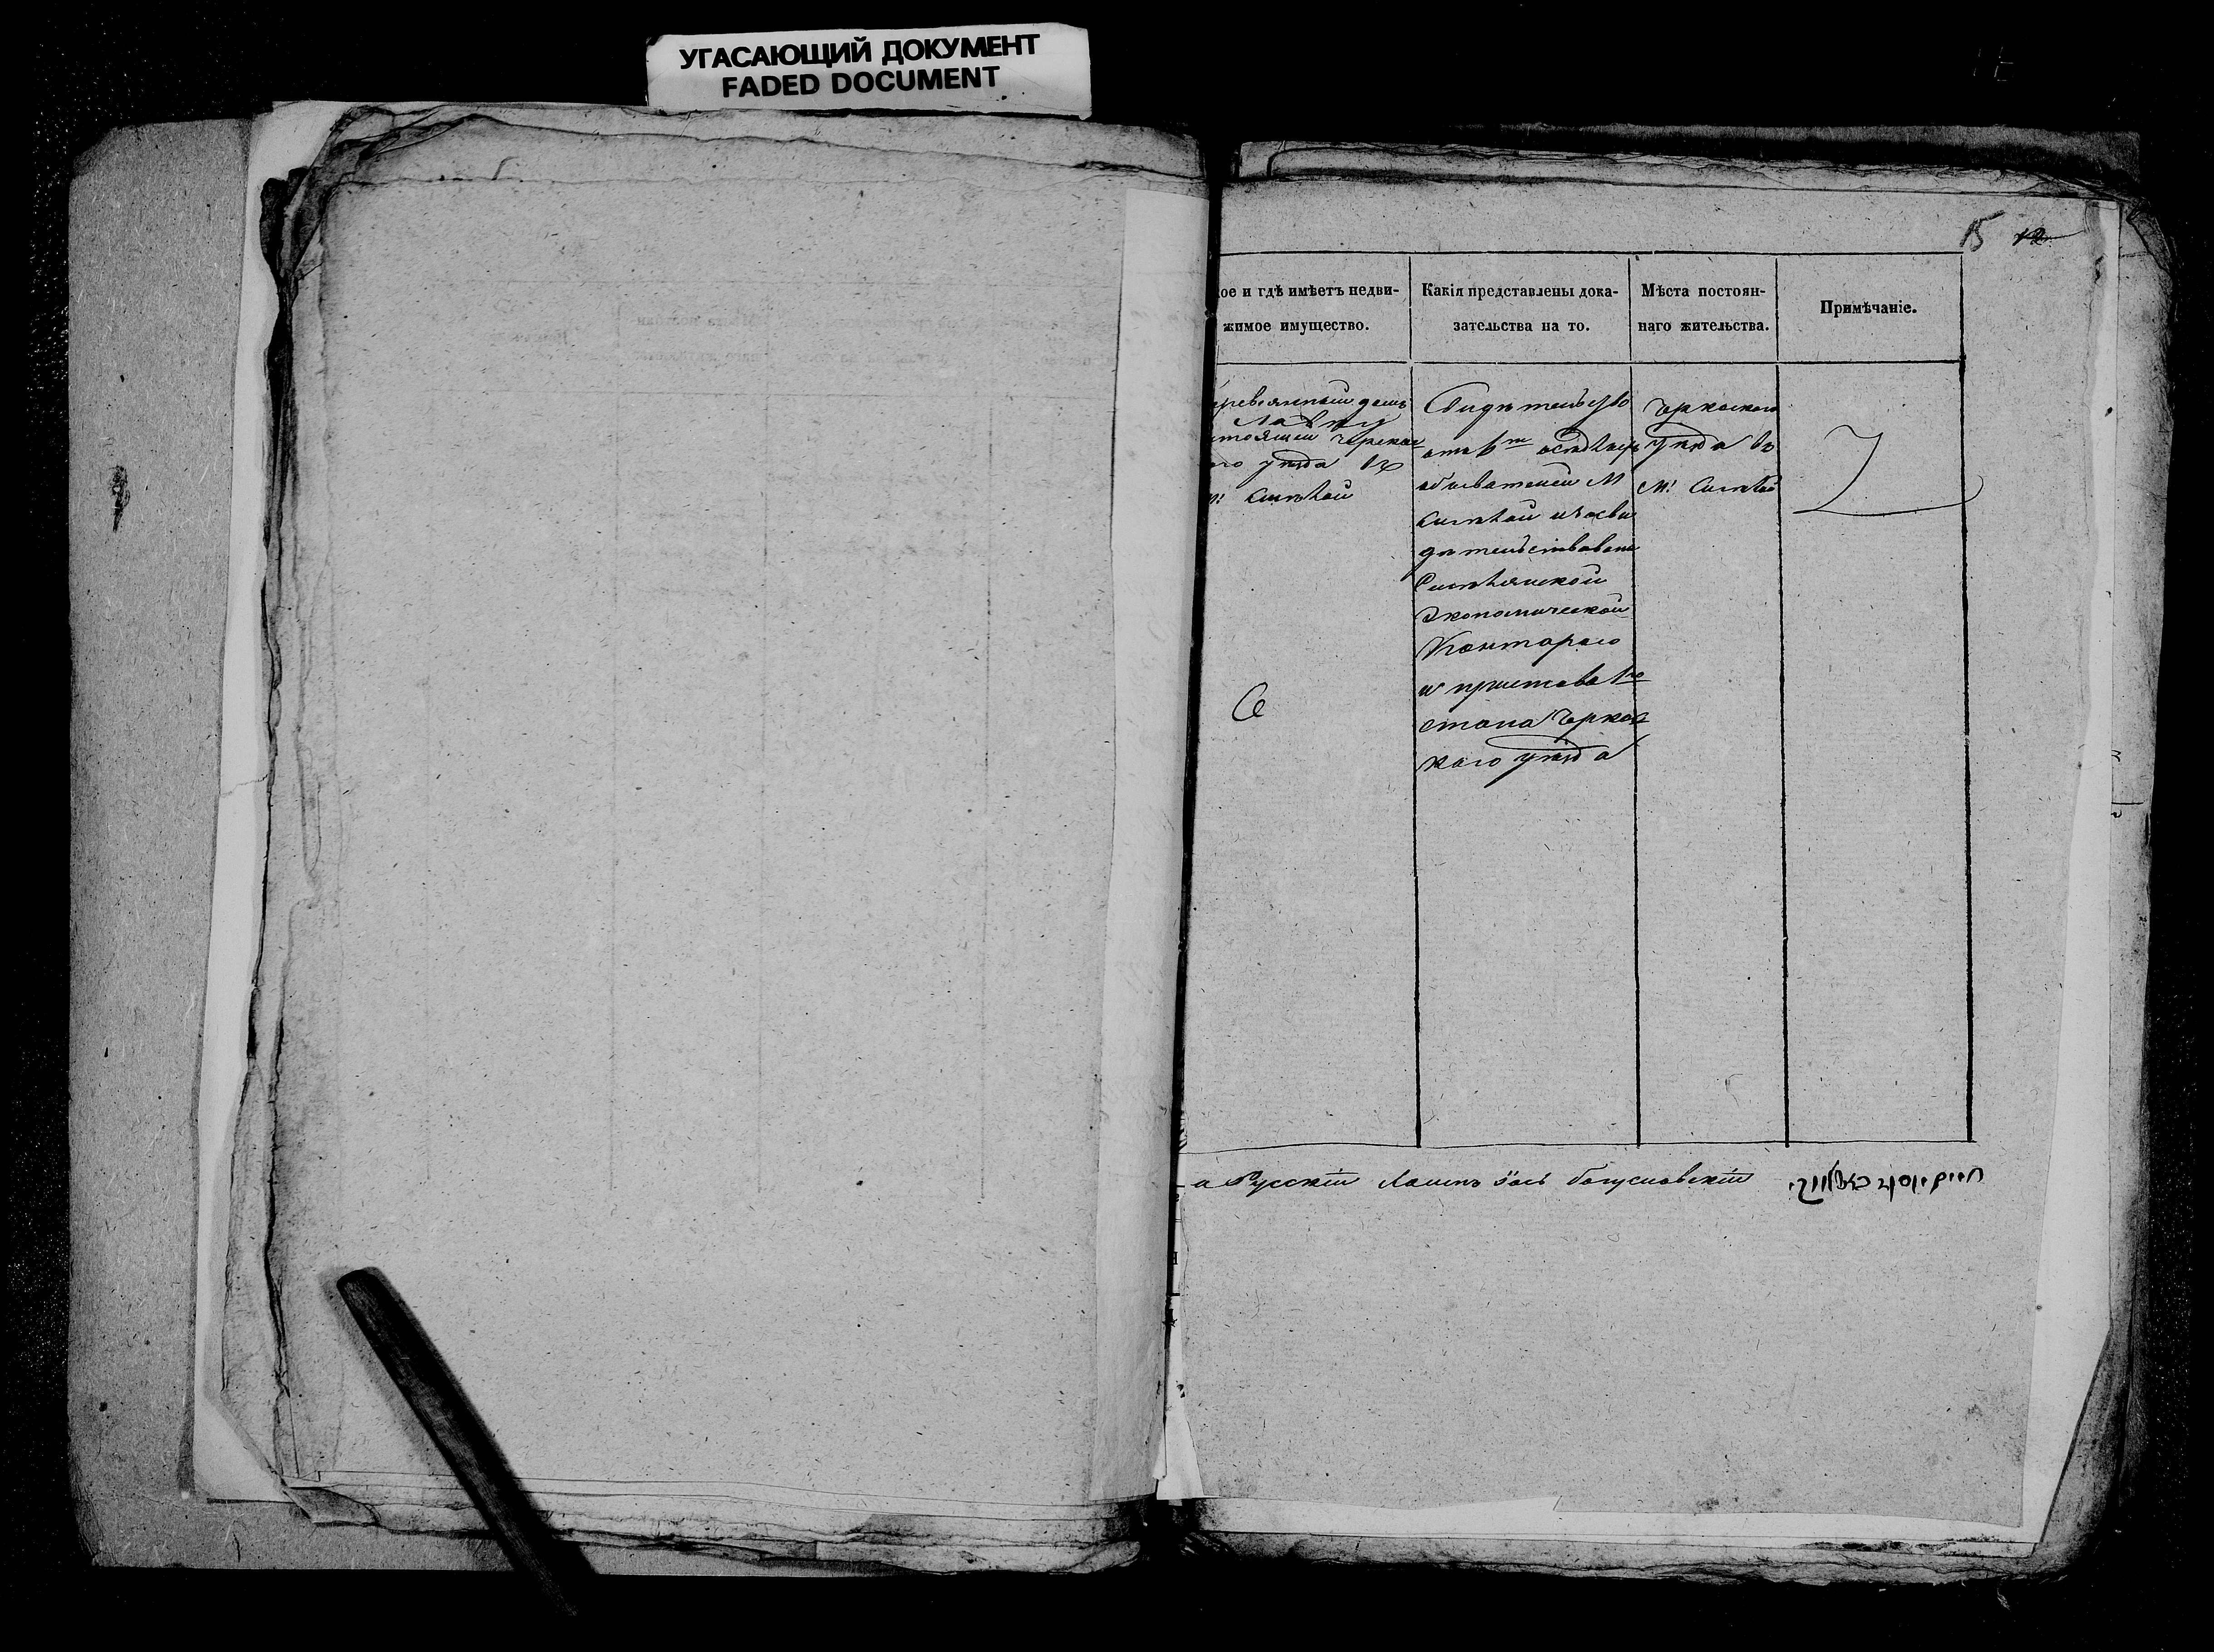 УГАСАЮЩИЙ ДОКУМЕНТ
FADED DOCUMENT
15 12
ое и гдѣ имѣетъ недви-
жимое имущество.
Какія представлены дока-
зательства на то.
Мѣста постоян-
наго жительства.
Примѣчаніе.
ревянный домъ
Лавку
стоящей Черкас
го уѣзда въ
м: Смѣлой
Свидѣтельство
отъ
обывателей М
Смѣлой и засви
дѣтельствовано
Смѣлянской
Экономической
Конторою
и пристава 1го
стана Черкас
каго уѣзда
Черкаскаго
уѣзда въ
М: Смѣлой
и Русскій богуславскій